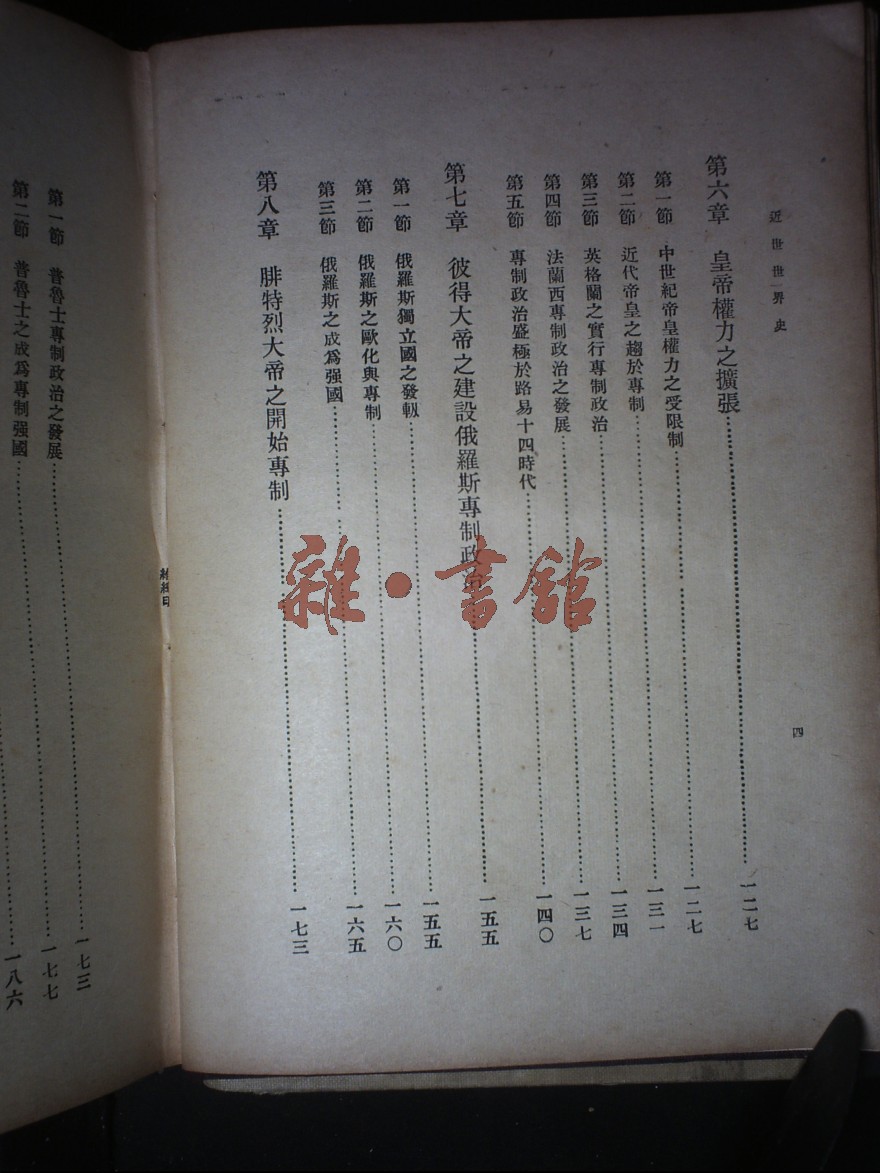 近世世界史
四
第六章 皇帝權力之擴張……一二七
第一節 中世紀帝皇權力之受限制……一二七
第二節 近代帝皇之趨於專制……一三一
第三節 英格蘭之實行專制政治……一三四
第四節 法蘭西專制政治之發展……一三七
第五節 專制政治盛極於路易十四時代……一四〇
第七章 彼得大帝之建設俄羅斯專制政治……一五五
第一節 俄羅斯獨立國之發軔……一五五
第二節 俄羅斯之歐化與專制……一六〇
第三節 俄羅斯之成爲强國……一六五
第八章 腓特烈大帝之開始專制……一七三
第一節 普魯士專制政治之發展……一七三
第二節 普魯士之成爲專制强國……一七七
一八六
雜·書館